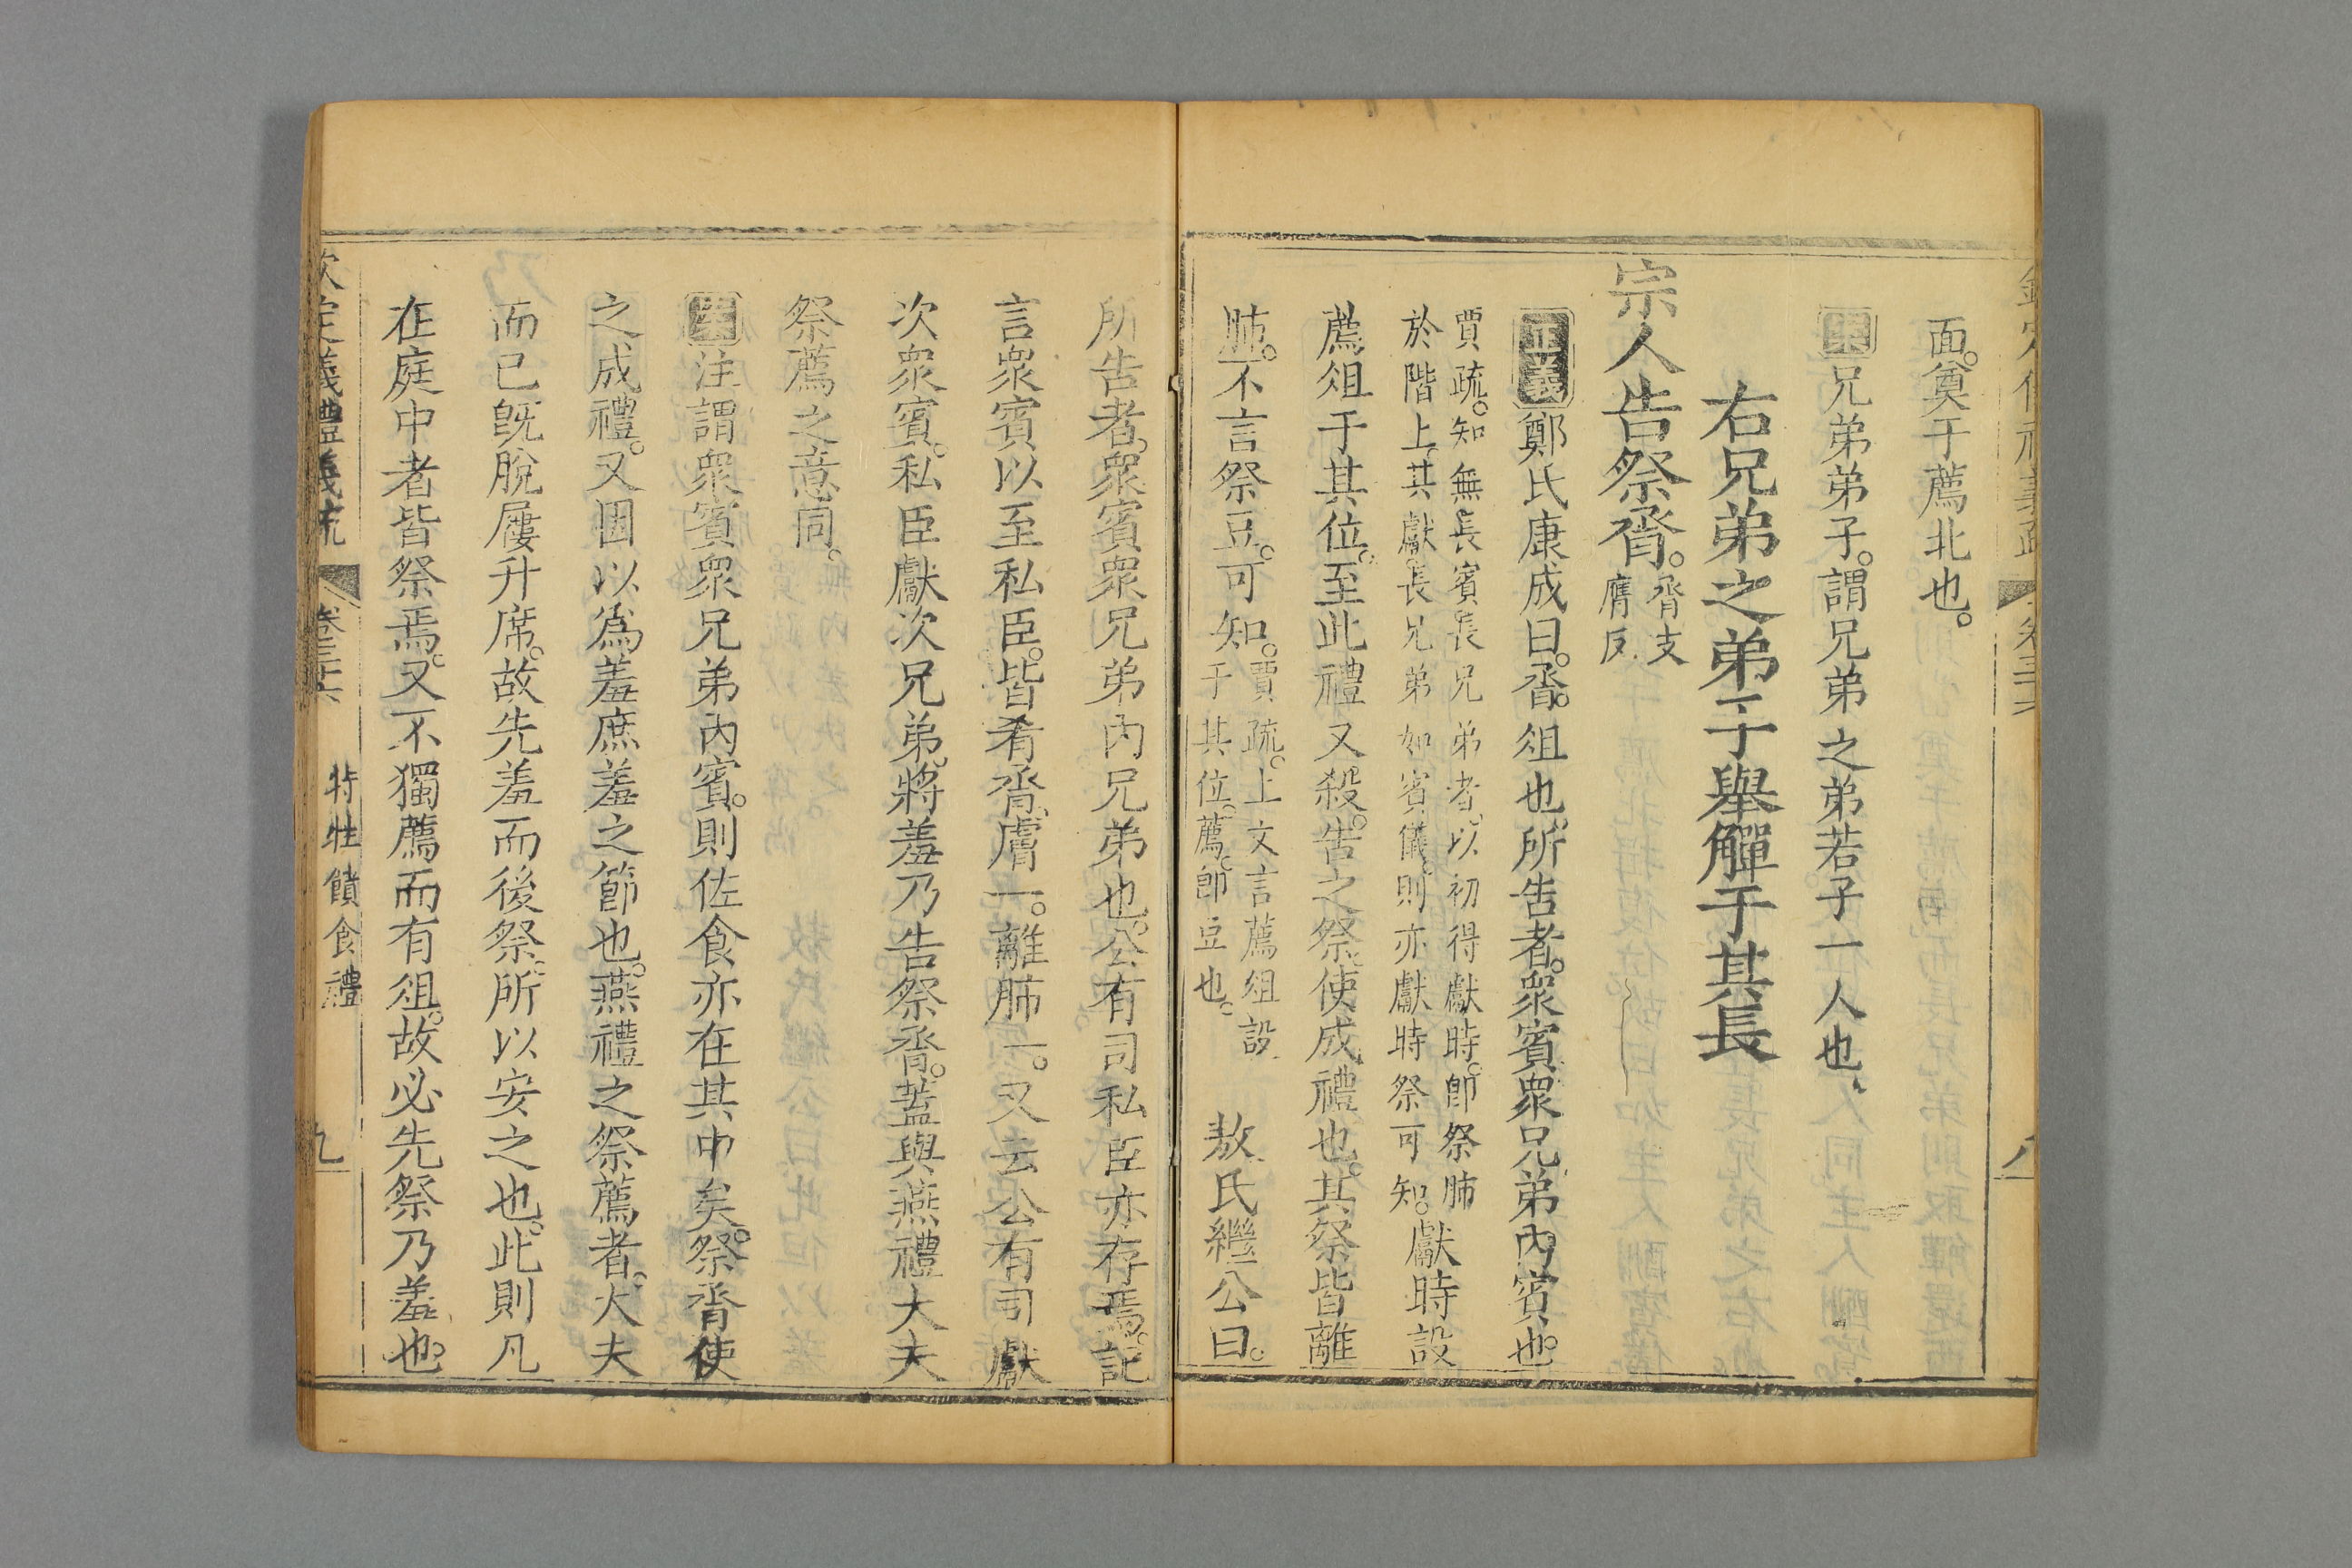 面。奠于薦北也。
案兄弟弟子。謂兄弟之弟若子一人也、
右兄弟之弟子舉觶于其長
宗人告祭脀。脀支
膺反
正義鄭氏康成曰。脀。俎也。所告者。衆賓衆兄弟內賓也。
賈疏。知無長賓長兄弟者。以初得獻時。卽祭肺
於階上。其獻。長兄弟如賓儀。則亦獻時祭可知。獻時設
薦俎于其位。至此禮又殺。告之祭。使成禮也。其祭皆離
肺。不言祭豆。可知。賈疏。上文言薦俎設
于其位。薦。卽豆也。敖氏繼公曰。
所告者。衆賓衆兄弟內兄弟也。公有司私臣亦存焉。記
言衆賓以至私臣。皆肴脀。膚一。離肺一。又云公有司獻
次衆賓。私臣獻次兄弟。將羞乃告祭脀。蓋與燕禮大夫
祭薦之意同。
案注謂衆賓衆兄弟內賓。則佐食亦在其中矣。祭脀使
之成禮。又因以爲羞庶羞之節也。燕禮之祭薦者。大夫
而已旣脫屨升席。故先羞而後祭。所以安之也。此則凡
在庭中者皆祭焉。又不獨薦而有俎。故必先祭乃羞也。
欽定儀禮義疏 卷三十六 特牲饋食禮 九